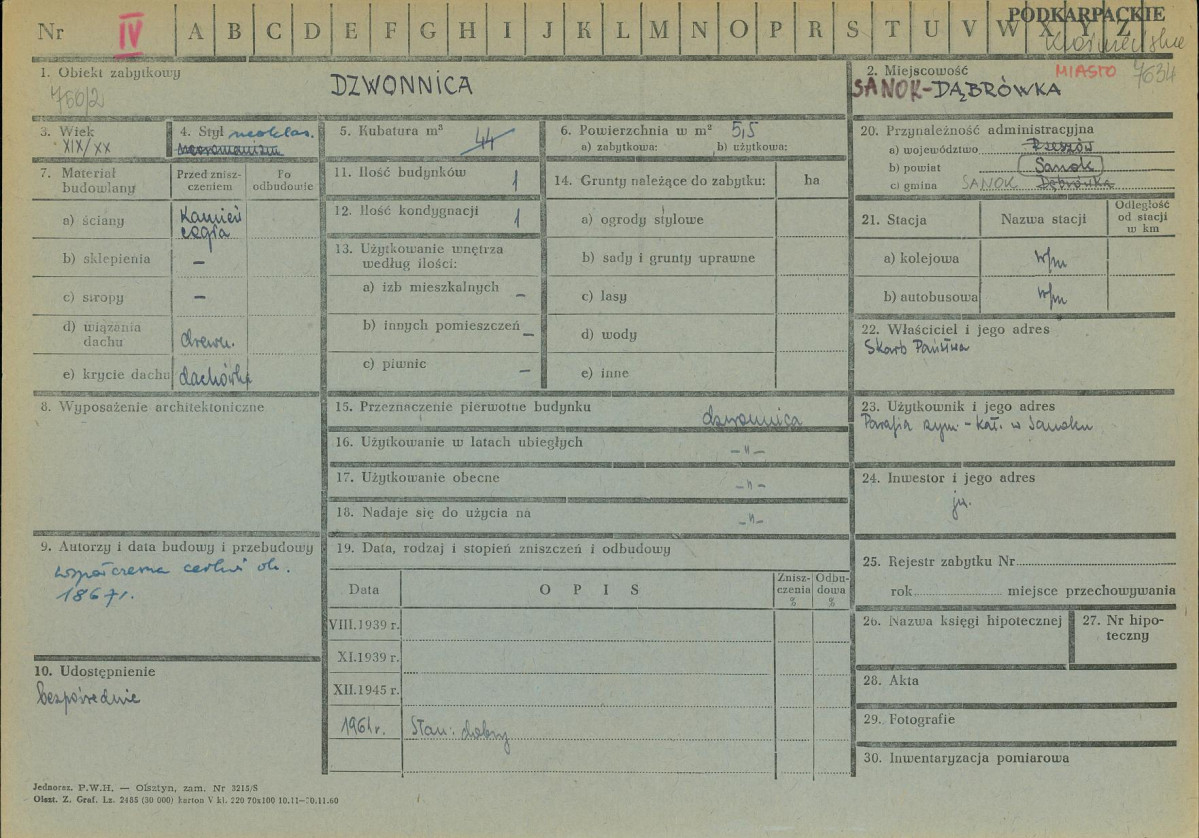 Nr IV A B C D E F G H I J K L M N O P R S T U V W X Y Z
PODKARPACKIE
1. Obiekt zabytkowy
750/2
DZWONNICA
2. Miejscowość MIASTO 7634
SANOK-DĄBRÓWKA
3. Wiek
XIX/XX
4. Styl neoklas.
neoromanizm
5. Kubatura m³ 44
6. Powierzchnia w m² 5,5
a) zabytkowa: b) użytkowa:
20. Przynależność administracyjna
a) województwo Rzeszów
b) powiat Sanok
c) gmina SANOK Dąbrówka
7. Materiał budowlany
Przed zniszczeniem
Po odbudowie
a) ściany Kamień cegła
b) sklepienia –
c) stropy –
d) wiązania dachu drewn.
e) krycie dachu dachówka
11. Ilość budynków 1
12. Ilość kondygnacji 1
13. Użytkowanie wnętrza według ilości:
a) izb mieszkalnych –
b) innych pomieszczeń –
c) piwnic –
14. Grunty należące do zabytku: ha
a) ogrody stylowe
b) sady i grunty uprawne
c) lasy
d) wody
e) inne
21. Stacja Nazwa stacji Odległość od stacji w km
a) kolejowa w/m
b) autobusowa w/m
22. Właściciel i jego adres
Skarb Państwa
8. Wyposażenie architektoniczne
15. Przeznaczenie pierwotne budynku dzwonnica
16. Użytkowanie w latach ubiegłych –"–
17. Użytkowanie obecne –"–
18. Nadaje się do użycia na –"–
23. Użytkownik i jego adres
Parafia rzym-kat. w Sanoku
24. Inwestor i jego adres
jw.
9. Autorzy i data budowy i przebudowy
współczesna cerkwi ok.
1867r.
10. Udostępnienie
bezpośrednie
19. Data, rodzaj i stopień zniszczeń i odbudowy
Data OPIS Zniszczenia % Odbudowa %
VIII.1939 r.
XI.1939 r.
XII.1945 r.
1961r. Stan: dobry
25. Rejestr zabytku Nr
rok miejsce przechowywania
26. Nazwa księgi hipotecznej
27. Nr hipoteczny
28. Akta
29. Fotografie
30. Inwentaryzacja pomiarowa
Jednoraz. P.W.H. — Olsztyn, zam. Nr 3215/S
Olszt. Z. Graf. Lz. 2485 (30 000) karton V kl. 220 70x100 10.11—20.11.60